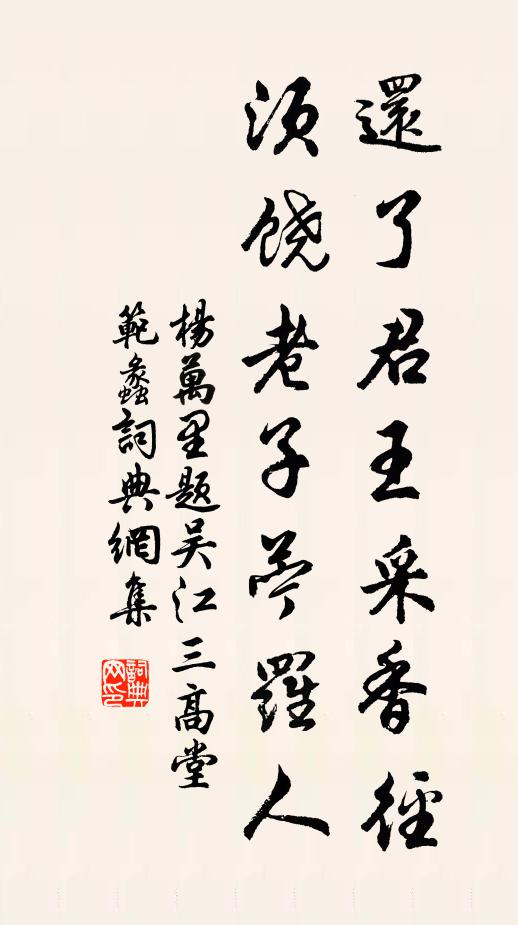 還了君王采香徑
須饒老子苎羅人
楊萬里題吴江三高堂
範蠡詞典網集
詞典网印